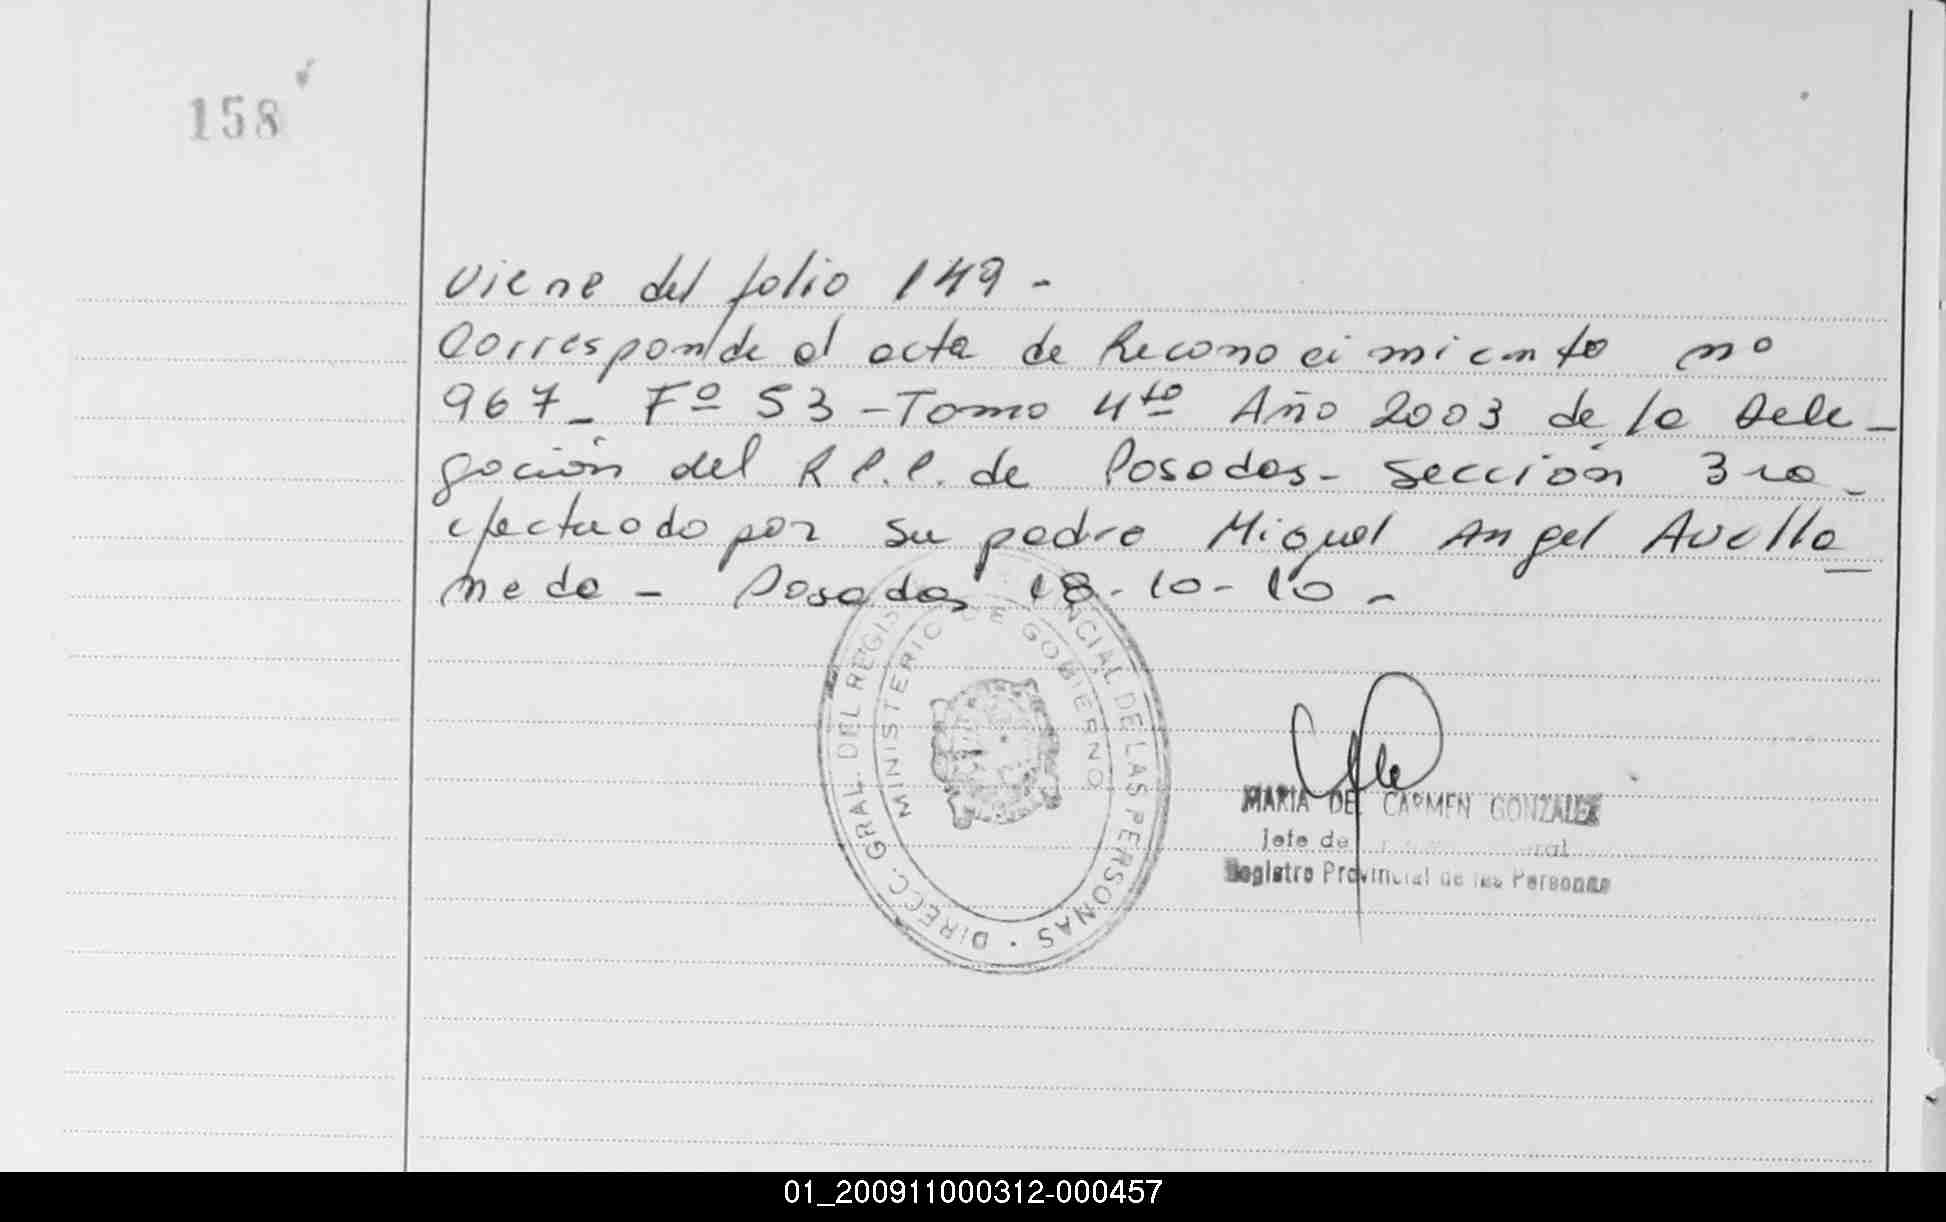 158
Viene del folio 149 -
Corresponde al acta de Reconocimiento nº
967_ Fº 53 - Tomo 4to Año 2003 de la Dele-
gación del R.P.P. de Posadas - Sección 3ra -
efectuado por su padre Miguel Angel Avella
neda - Posadas 18-10-10 -
DIRECC. GRAL. DEL REGIS NCIAL DE LAS PERSONAS ·
MINISTERIO DE GOBIERNO
MARIA DEL CARMEN GONZALEZ
Jefe de
Registro Provincial de las Personas
01_200911000312-000457